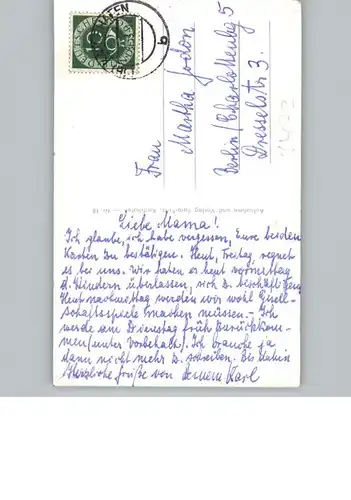 Frau
Martha Jordon
Berlin/Charlottenbg 5
Dresselstr 3.
Aufnahme und Verlag
Liebe Mama!
Ich glaube, ich habe vergessen, Eure beiden
Karten zu bestätigen. Heut, Freitag, regnet
es bei uns. Wir haben es heut vormittag
d. Kindern überlassen, sich z. beschäftigen
Heut nachmittag werden wir wohl Gesell-
schaftsspiele machen müssen. - Ich
werde am Dienstag früh zurückkom-
men (unter Vorbehalt). Ich brauche ja
dann nicht mehr z. schreiben. Bis dahin
herzliche Grüße von Deinem Karl